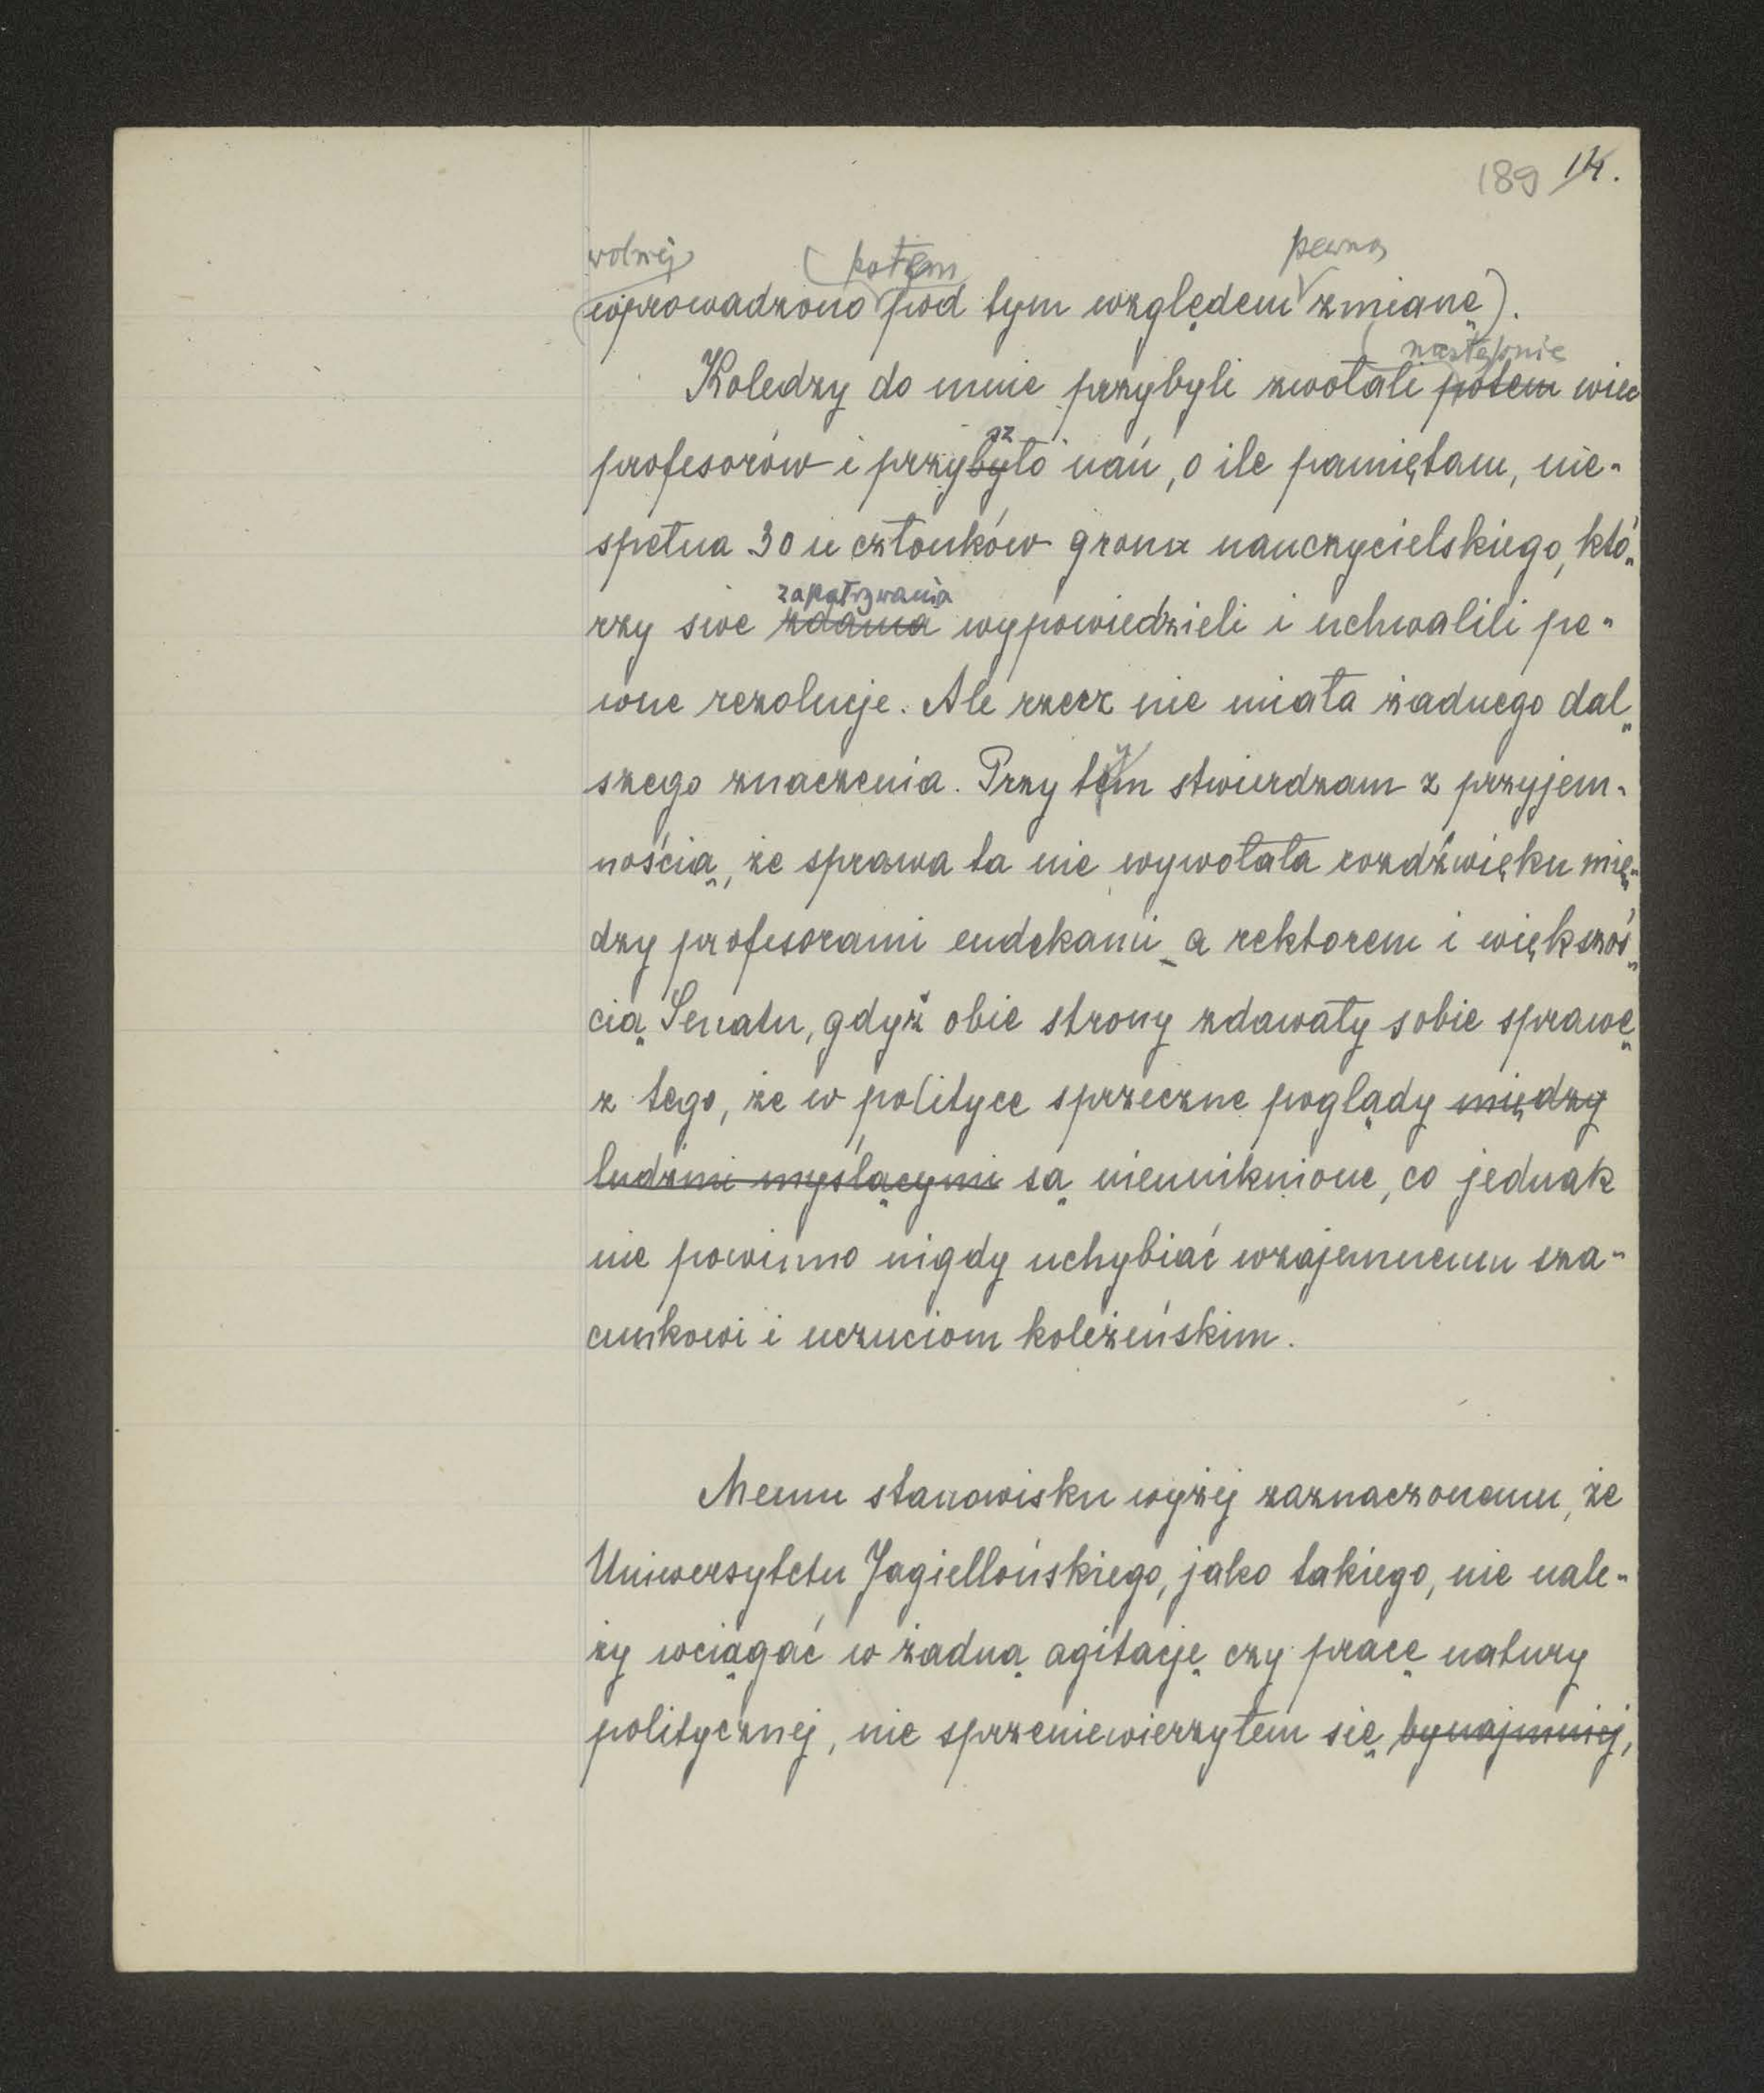 189 14.
potem pewną
wprowadzono pod tym względem zmianę).
następnie
Koledzy do mnie przybyli zwołali potem wiec
sz
profesorów i przybyło nań, o ile pamiętam, nie-
spełna 30 u członków grona nauczycielskiego, któ-
zapatrywania
rzy swe zdania wypowiedzieli i uchwalili pe-
wne rezolucje. Ale rzecz nie miała żadnego dal-
szego znaczenia. Przy tym stwierdzam z przyjem-
nością, że sprawa ta nie wywołała rozdźwięku mię-
dzy profesorami endekami a rektorem i większoś-
cią Senatu, gdyż obie strony zdawały sobie sprawę
z tego, że w polityce sprzeczne poglądy między
ludźmi myślącymi są nieuniknione, co jednak
nie powinno nigdy uchybiać wzajemnemu sza-
cunkowi i uczuciom koleżeńskim.
Memu stanowisku wyżej zaznaczonemu, że
Uniwersytetu Jagiellońskiego, jako takiego, nie nale-
ży wciągać w żadną agitację czy pracę natury
politycznej, nie sprzeniewierzyłem się bynajmniej,